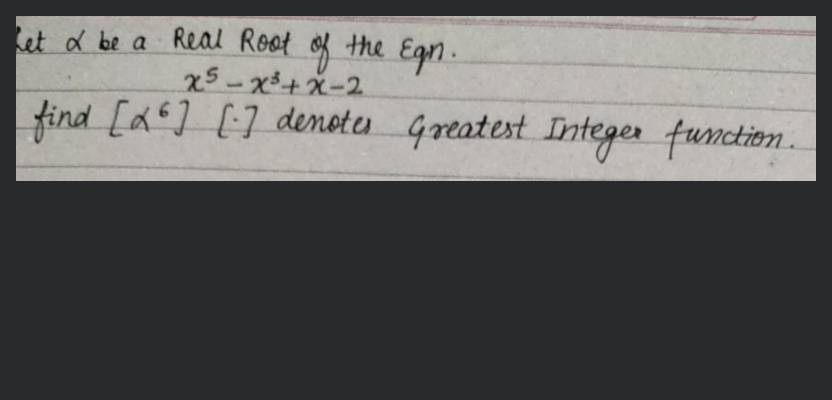 Let α be a Real Root of the Eqn.
x⁵ - x³ + x - 2
find [α⁶] [·] denotes Greatest Integer function.